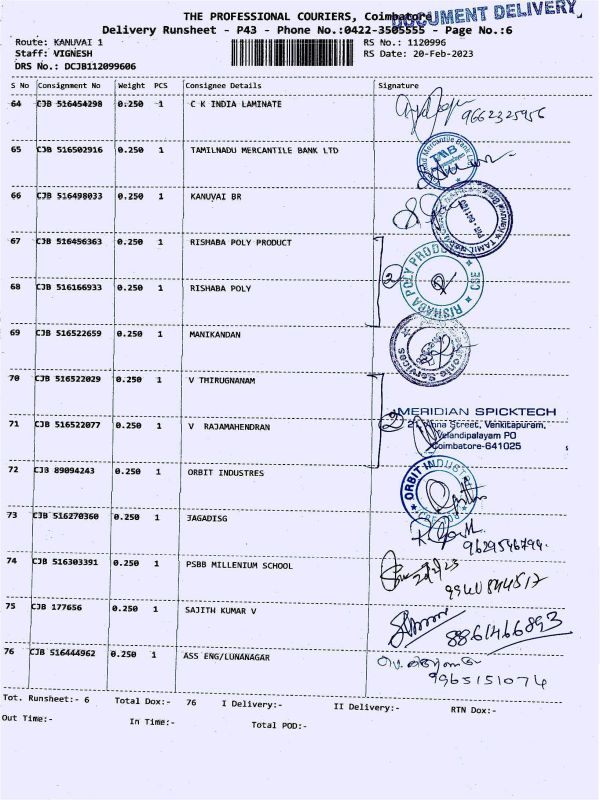 THE PROFESSIONAL COURIERS, Coimbatore
DOCUMENT DELIVERY
Delivery Runsheet - P43 - Phone No.:0422-3505555 - Page No.:6
Route: KANUVAI 1 RS No.: 1120996
Staff: VIGNESH RS Date: 20-Feb-2023
DRS No.: DCJB112099606
S No Consignment No Weight PCS Consignee Details Signature
64 CJB 516454298 0.250 1 C K INDIA LAMINATE
9662325956
65 CJB 516502916 0.250 1 TAMILNADU MERCANTILE BANK LTD
66 CJB 516498033 0.250 1 KANUVAI BR
67 CJB 516456363 0.250 1 RISHABA POLY PRODUCT
2 RISHABA POLY PRODUCT
68 CJB 516166933 0.250 1 RISHABA POLY
69 CJB 516522659 0.250 1 MANIKANDAN
Services
70 CJB 516522029 0.250 1 V THIRUGNANAM
MERIDIAN SPICKTECH
71 CJB 516522077 0.250 1 V RAJAMAHENDRAN
2 Anna Street, Venkitapuram,
Velandipalayam PO
Coimbatore-641025
72 CJB 89094243 0.250 1 ORBIT INDUSTRES
ORBIT INDUST
73 CJB 516270360 0.250 1 JAGADISG
9629546794.
74 CJB 516303391 0.250 1 PSBB MILLENIUM SCHOOL
75 CJB 177656 0.250 1 SAJITH KUMAR V
8861466893
76 CJB 516444962 0.250 1 ASS ENG/LUNANAGAR
9965151074
Tot. Runsheet:- 6 Total Dox:- 76 I Delivery:- II Delivery:- RTN Dox:-
Out Time:- In Time:- Total POD:-